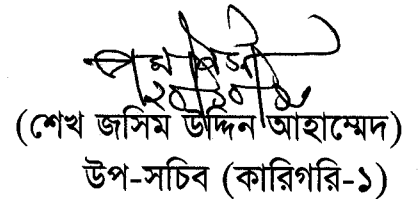 (শেখ জসিম উদ্দিন আহাম্মেদ)
উপ-সচিব (কারিগরি-১)